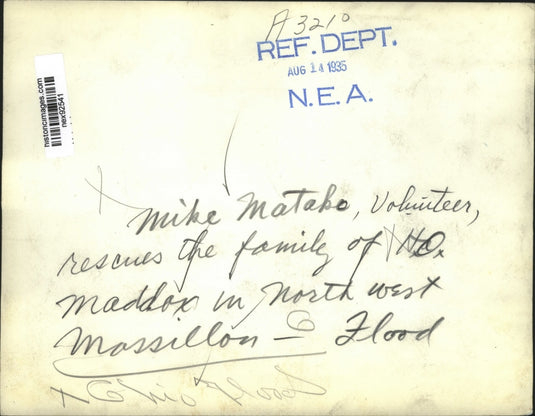 A3210
REF. DEPT.
AUG 14 1935
N.E.A.
historicimages.com
nex92541
Mike Matako, Volunteer,
rescues the family of
Maddox in North west
Massillon - Flood
Ohio Flood